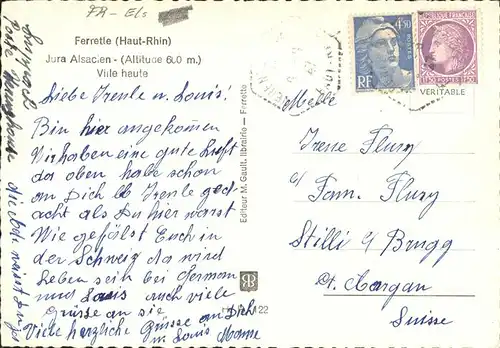 FR-Els
Ferrette (Haut-Rhin)
Jura Alsacien - (Altitude 600 m.)
Ville haute
Liebe Irenle u. Louis!
Bin hier angekommen
Wir haben eine gute Luft
da oben habe schon
an Dich lb Irenle ged
acht als Du hier warst
Wie gefällst Euch in
der Schweiz da wird
Leben sein bei German
und Louis auch viele
Grüsse an sie
Viele herzliche Grüsse an Dich
u. Louis
Editeur M. Gault, librairie - Ferrette
22
4F50
POSTES
RF
FRANÇAISE
1F50
POSTES
1F50
VERITABLE
Melle
Irene Flury
c/
Fam. Flury
Stilli b/ Brugg
Ct. Aargau
Suisse